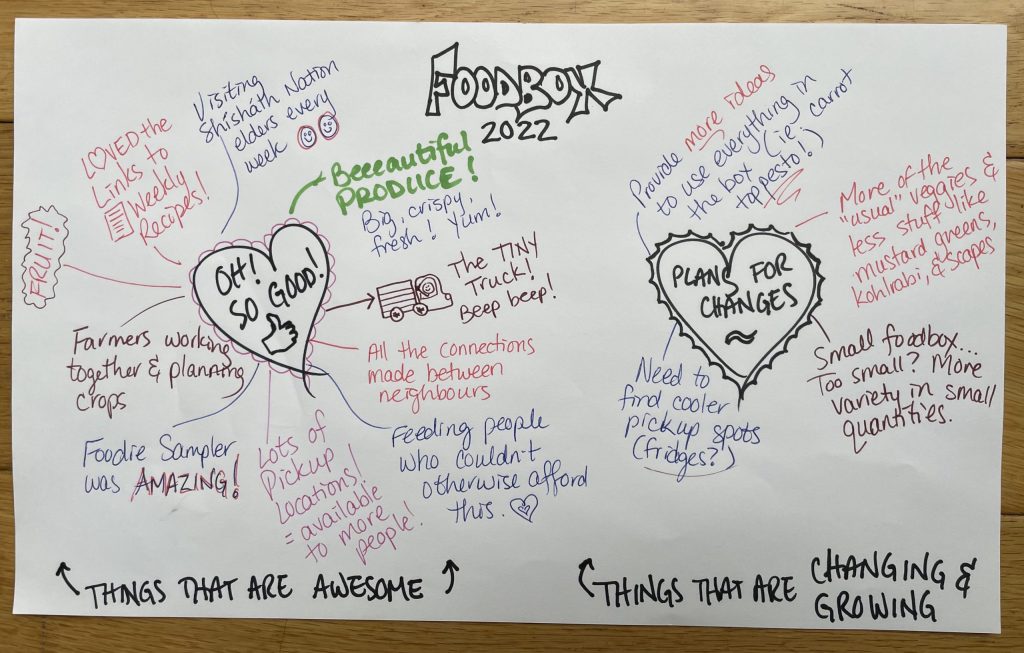 FOODBOX
2022
Visiting
shísháth Nation
elders every
week
LOVED the
Links to
Weekly
Recipes!
FRUIT!
Beeeautiful
PRODUCE!
Big, crispy,
fresh! Yum!
OH!
SO GOOD!
The TINY
Truck!
Beep beep!
Farmers working
together & planning
crops
All the connections
made between
neighbours
Foodie Sampler
was AMAZING!
Lots of
Pickup
Locations!
= available
to more
people!
Feeding people
who couldn't
otherwise afford
this.
↖ THINGS THAT ARE AWESOME ↗
Provide more ideas
to use everything in
the box (ie: carrot
top pesto!)
More of the
"usual" veggies &
less stuff like
mustard greens,
kohlrabi, & scapes
PLANS FOR
CHANGES
~
Need to
find cooler
pickup spots
(fridges?)
Small foodbox...
Too small? More
variety in small
quantities.
↖ THINGS THAT ARE CHANGING &
GROWING